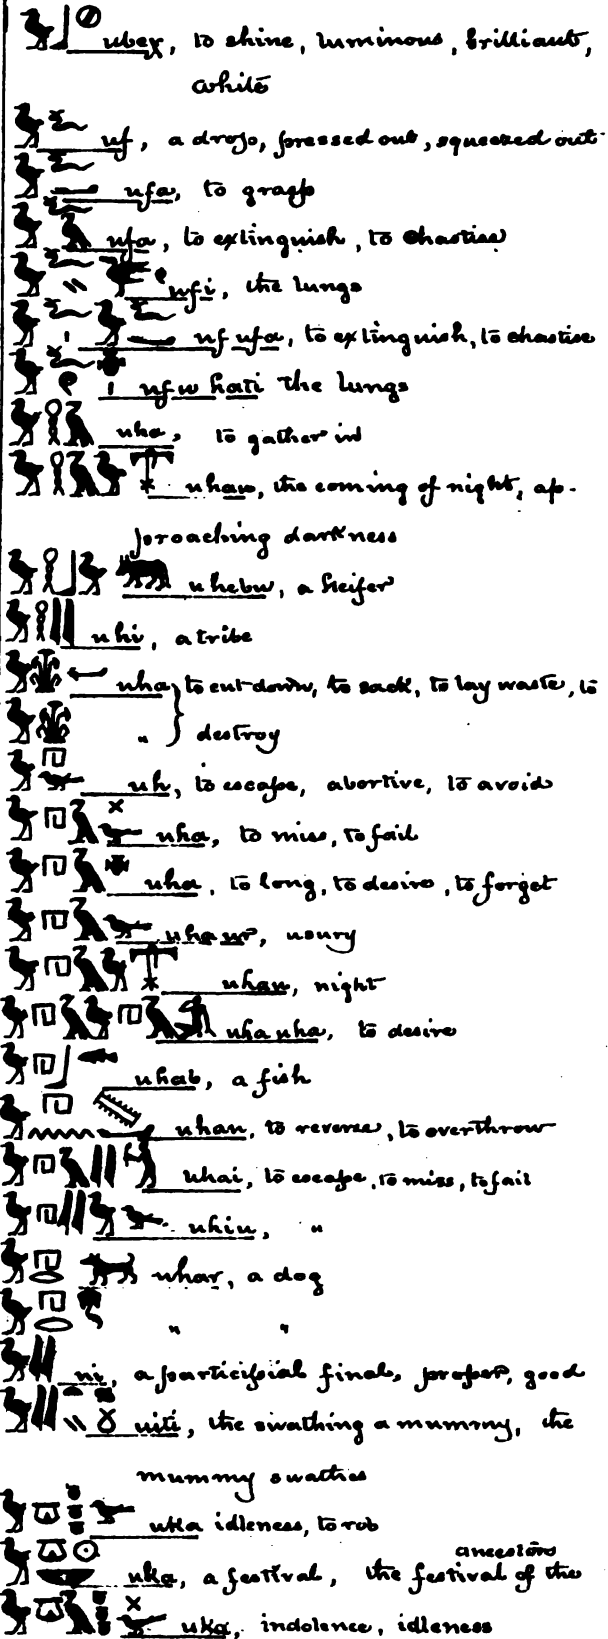 ubex, to shine, luminous, brilliant,
white
uf, a drop, pressed out, squeezed out
ufa, to grasp
ufa, to extinguish, to chastise
ufi, the lungs
uf ufa, to extinguish, to chastise
ufu hati the lungs
uha, to gather in
uhau, the coming of night, ap-
proaching darkness
uhebu, a heifer
uhi, a tribe
uha } to cut down, to sack, to lay waste, to
" } destroy
uh, to escape, abortive, to avoid
uha, to miss, to fail
uha, to long, to desire, to forget
uhaur, usury
uhau, night
uha uha, to desire
uhab, a fish
uhan, to reverse, to overthrow
uhai, to escape, to miss, to fail
uhiu, "
uhar, a dog
" "
ui, a participial final, proper, good
uiti, the swathing a mummy, the
mummy swathes
uka idleness, to rob
ancestors
uka, a festival, the festival of the
uka, indolence, idleness